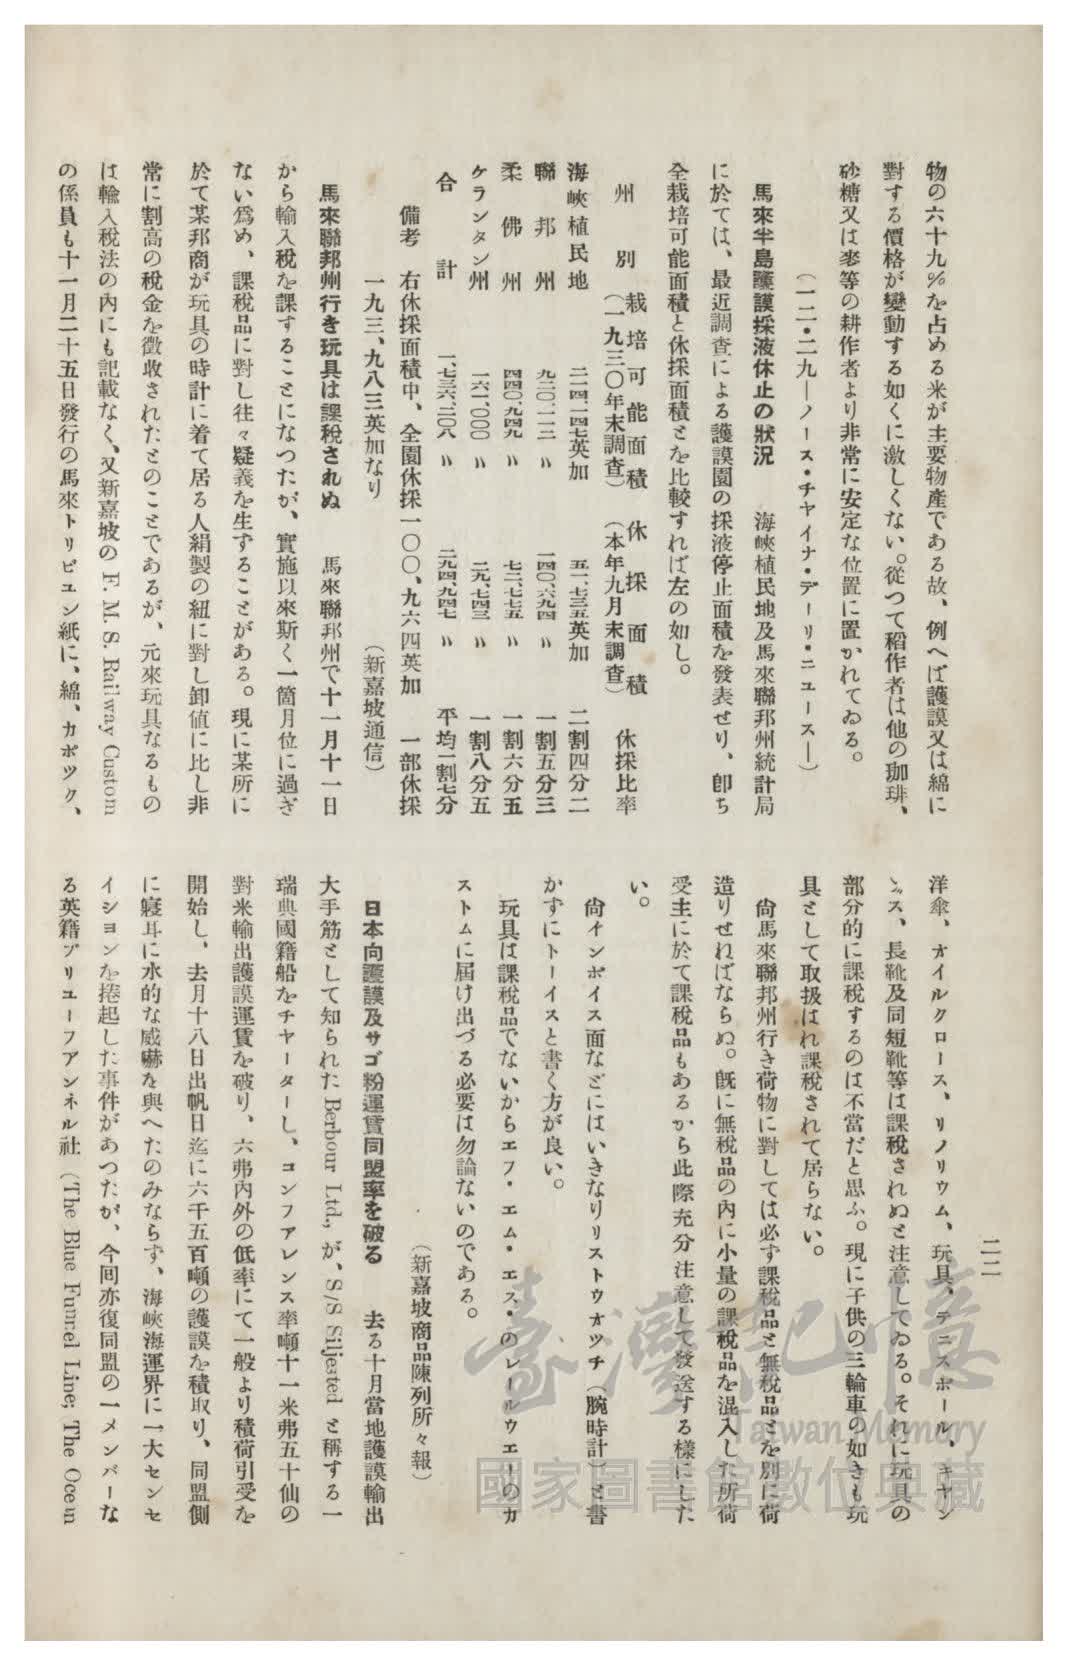 二二
物の六十九％を占める米が主要物產である故、例へば護謨又は綿に
對する價格が變動する如くに激しくない。從つて稻作者は他の珈琲、
砂糖又は麥等の耕作者より非常に安定な位置に置かれてゐる。
（一二・二九―ノース・チヤイナ・デーリ・ニユース―）
馬來半島護謨採液休止の狀況　海峽植民地及馬來聯邦州統計局
に於ては、最近調査による護謨園の採液停止面積を發表せり、卽ち
全栽培可能面積と休採面積とを比較すれば左の如し。
州別　栽培可能面積（一九三〇年末調査）　休採面積（本年九月末調査）　休採比率
海峽植民地　二一四、一四七英加　五一、七三五英加　二割四分二
聯邦州　九二〇、一一二〃　一四〇、六九四〃　一割五分三
柔佛州　四四〇、九四九〃　七二、七七五〃　一割六分五
ケランタン州　一六一、〇〇〇〃　二九、七四三〃　一割八分五
合計　一、七三六、二〇八〃　二九四、九四七〃　平均一割七分
備考　右休採面積中、全園休採一〇〇、九六四英加　一部休採
一九三、九八三英加なり
（新嘉坡通信）
馬來聯邦州行き玩具は課稅されぬ　馬來聯邦州で十一月十一日
から輸入稅を課することになつたが、實施以來斯く一箇月位に過ぎ
ない爲め、課稅品に對し往々疑義を生ずることがある。現に某所に
於て某邦商が玩具の時計に着て居る人絹製の紐に對し卸値に比し非
常に割高の稅金を徵收されたとのことであるが、元來玩具なるもの
は輸入稅法の內にも記載なく、又新嘉坡の F. M. S. Railway Custom
の係員も十一月二十五日發行の馬來トリビユン紙に、綿、カポツク、
洋傘、オイルクロース、リノリウム、玩具、テニスボール、キヤン
ㇵス、長靴及同短靴等は課稅されぬと注意してゐる。それに玩具の
部分的に課稅するのは不當だと思ふ。現に子供の三輪車の如きも玩
具として取扱はれ課稅されて居らない。
尙馬來聯邦州行き荷物に對しては必ず課稅品と無稅品とを別に荷
造りせねばならぬ。旣に無稅品の內に小量の課稅品を混入した所荷
受主に於て課稅品もあるから此際充分注意して發送する樣にした
い。
尙インボイス面などにはいきなりリストウオツチ（腕時計）と書
かずにトーイスと書く方が良い。
玩具は課稅品でないからエフ・エム・エス・のレールウエーのカ
ストムに屆け出づる必要は勿論ないのである。
（新嘉坡商品陳列所々報）
日本向護謨及サゴ粉運賃同盟率を破る　去る十月當地護謨輸出
大手筋として知られた Berbour Ltd., が、S/S Siljested と稱する一
瑞典國籍船をチヤーターし、コンフアレンス率噸十一米弗五十仙の
對米輸出護謨運賃を破り、六弗內外の低率にて一般より積荷引受を
開始し、去月十八日出帆日迄に六千五百噸の護謨を積取り、同盟側
に寢耳に水的な威嚇を與へたのみならず、海峽海運界に一大センセ
イシヨンを捲起した事件があつたが、今囘亦復同盟の一メンバーな
る英籍ブリユーフアンネル社（The Blue Funnel Line; The Ocean
臺灣記憶
Taiwan Memory
國家圖書館數位典藏